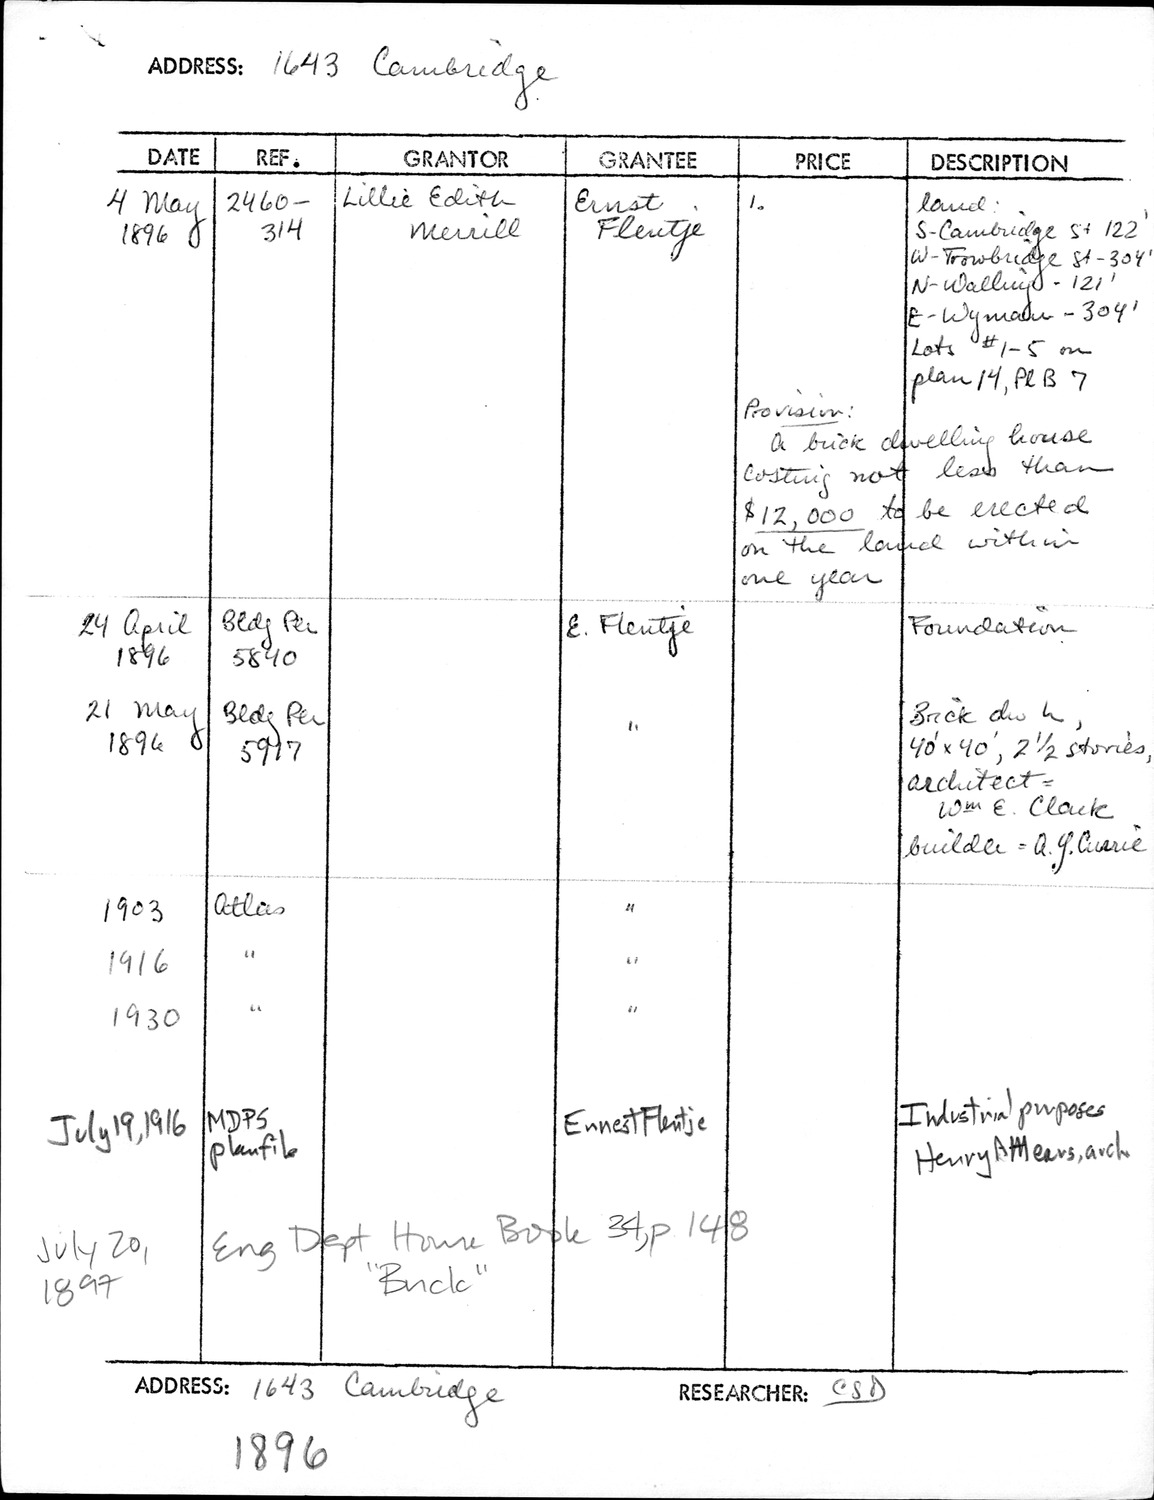 ADDRESS: 1643 Cambridge
DATE REF. GRANTOR GRANTEE PRICE DESCRIPTION
4 May 1896
2460-314
Lillie Edith Merrill
Ernst Flentje
1.
land:
S-Cambridge St 122'
W-Trowbridge St-304'
N-Walling - 121'
E-Wyman - 304'
Lots #1-5 on
plan 14, Pl B 7
Provision:
A brick dwelling house
costing not less than
$12,000 to be erected
on the land within
one year
24 April 1896
Bldg Per 5840
E. Flentje
Foundation
21 May 1896
Bldg Per 5917
"
Brick dw h,
40'x40', 2 1/2 stories,
architect =
Wm E. Clark
builder = A.J. Currie
1903 Atlas "
1916 " "
1930 " "
July 19, 1916
MDPS planfile
Ernnest Flentje
Industrial purposes
Henry A Mears, arch
July 20, 1897
Eng Dept House Book 34, p 148
"Brick"
ADDRESS: 1643 Cambridge RESEARCHER: CSD
1896